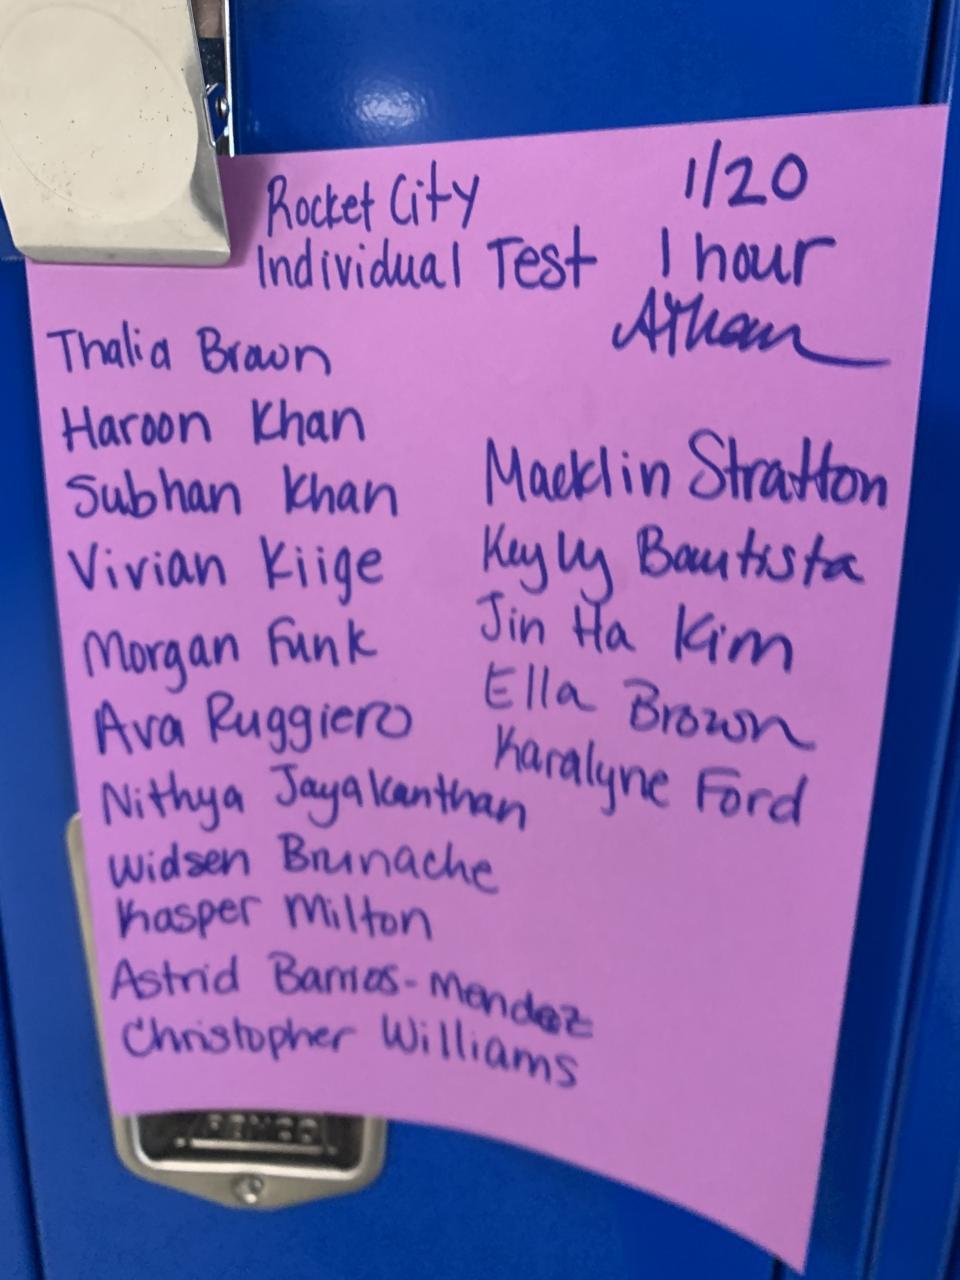 Rocket City
Individual Test
1/20
1 hour
Thalia Brown
Haroon Khan
Subhan Khan
Vivian Kiige
Morgan Funk
Ava Ruggiero
Nithya Jayakanthan
Widsen Brunache
Kasper Milton
Astrid Barrios-Mendez
Christopher Williams
Macklin Stratton
Keyly Bautista
Jin Ha Kim
Ella Brown
Karalyne Ford
PENCO